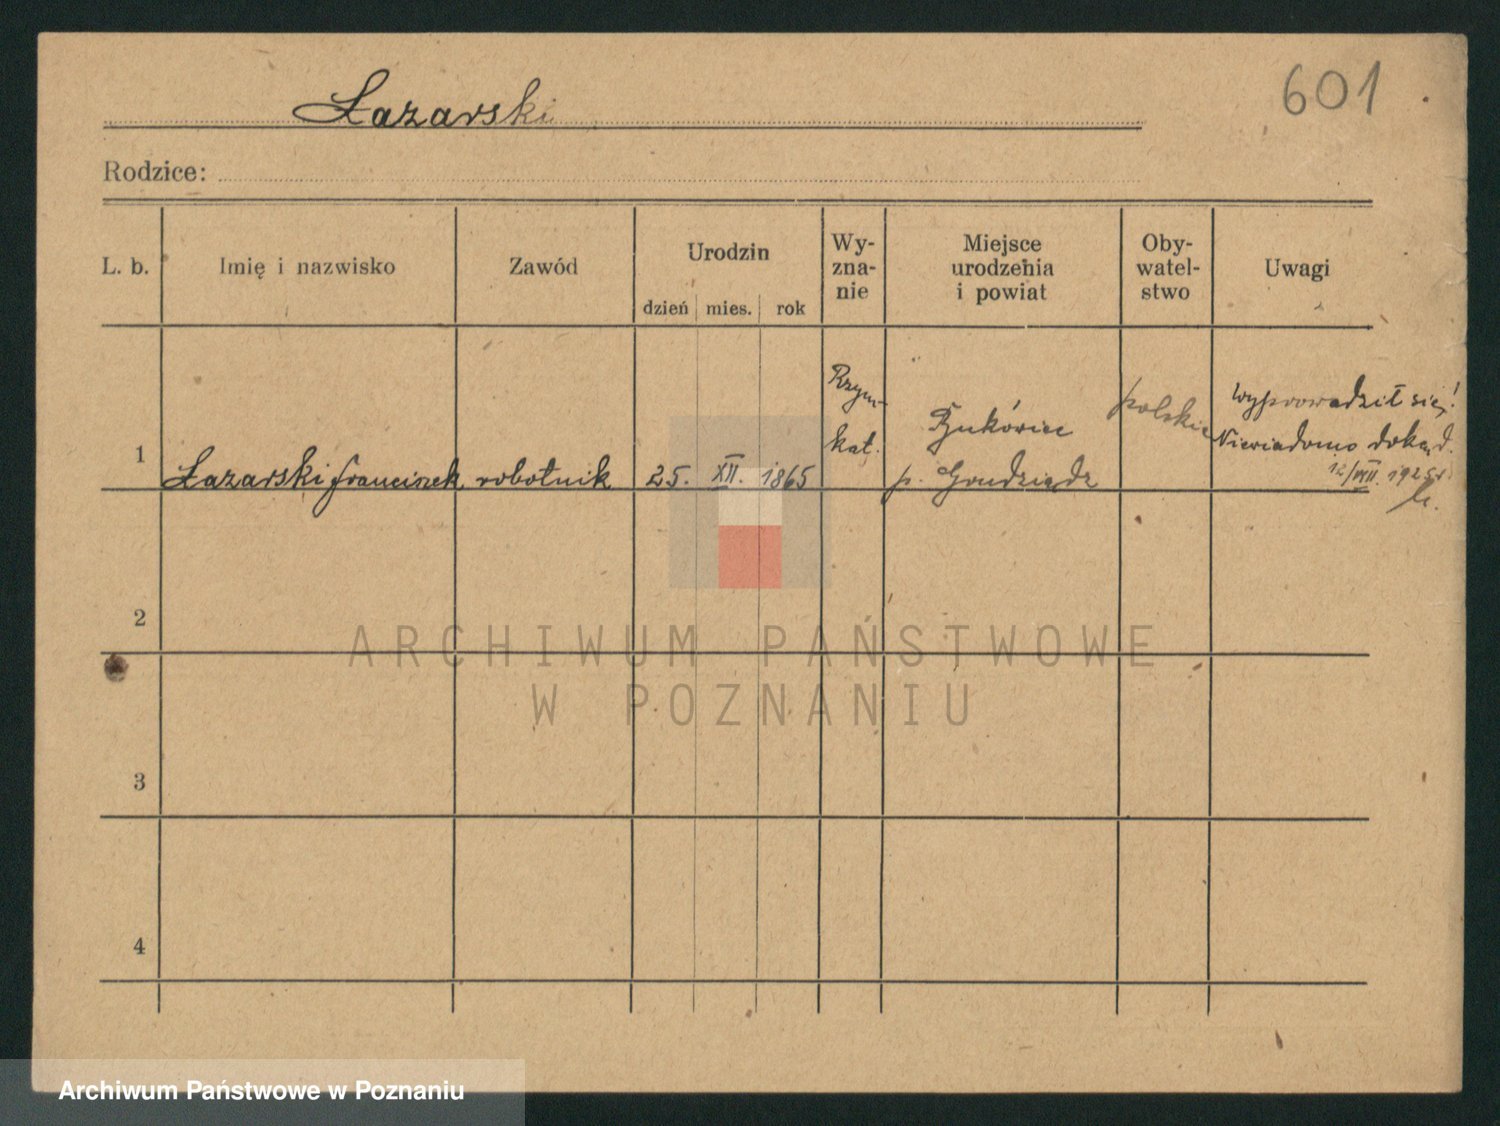 601
Łazarski
Rodzice:
L. b.
Imię i nazwisko
Zawód
Urodzin
dzień mies. rok
Wy-
zna-
nie
Miejsce
urodzenia
i powiat
Oby-
watel-
stwo
Uwagi
1
Łazarski Franciszek
robotnik
25. XII. 1865
Rzym-
kat.
Bukówiec
p. Grudziądz
polskie
Wyprowadził się!
Niewiadomo dokąd.
12/VIII. 1925r
2
3
4
ARCHIWUM PAŃSTWOWE
W POZNANIU
Archiwum Państwowe w Poznaniu